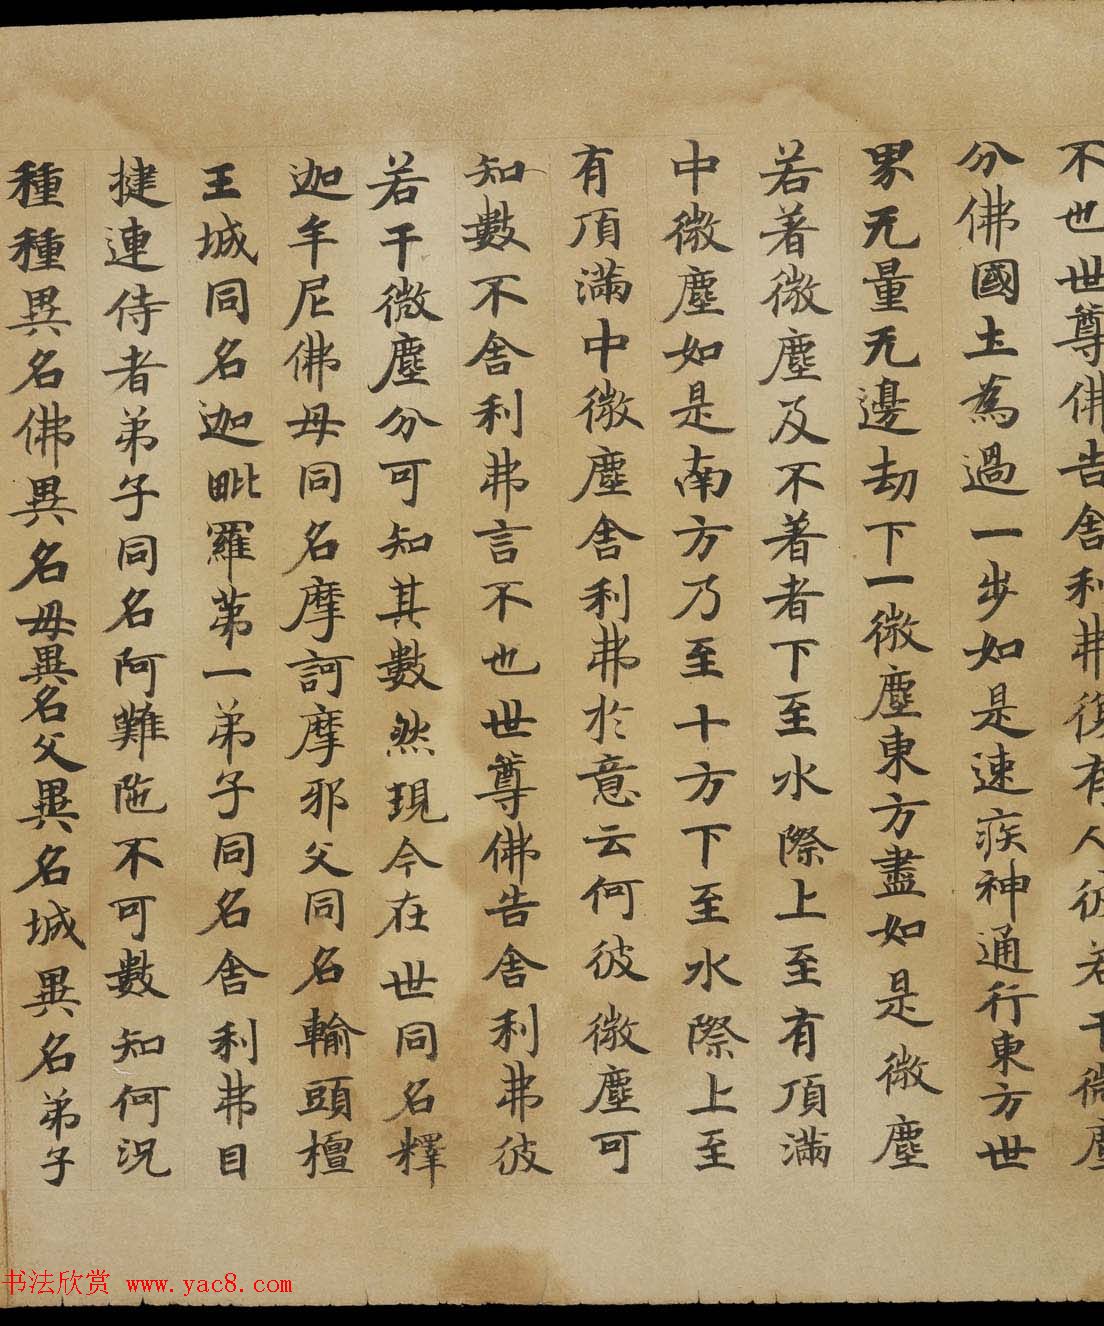 不也世尊佛告舍利弗復有人彼若干微塵
分佛國土為過一步如是速疾神通行東方世
界无量无邊劫下一微塵東方盡如是微塵
若著微塵及不著者下至水際上至有頂滿
中微塵如是南方乃至十方下至水際上至
有頂滿中微塵舍利弗於意云何彼微塵可
知數不舍利弗言不也世尊佛告舍利弗彼
若干微塵分可知其數然現今在世同名釋
迦牟尼佛母同名摩訶摩耶父同名輸頭檀
王城同名迦毗羅苐一弟子同名舍利弗目
揵連侍者弟子同名阿難陁不可數知何況
種種異名佛異名母異名父異名城異名弟子
书法欣赏 www.yac8.com